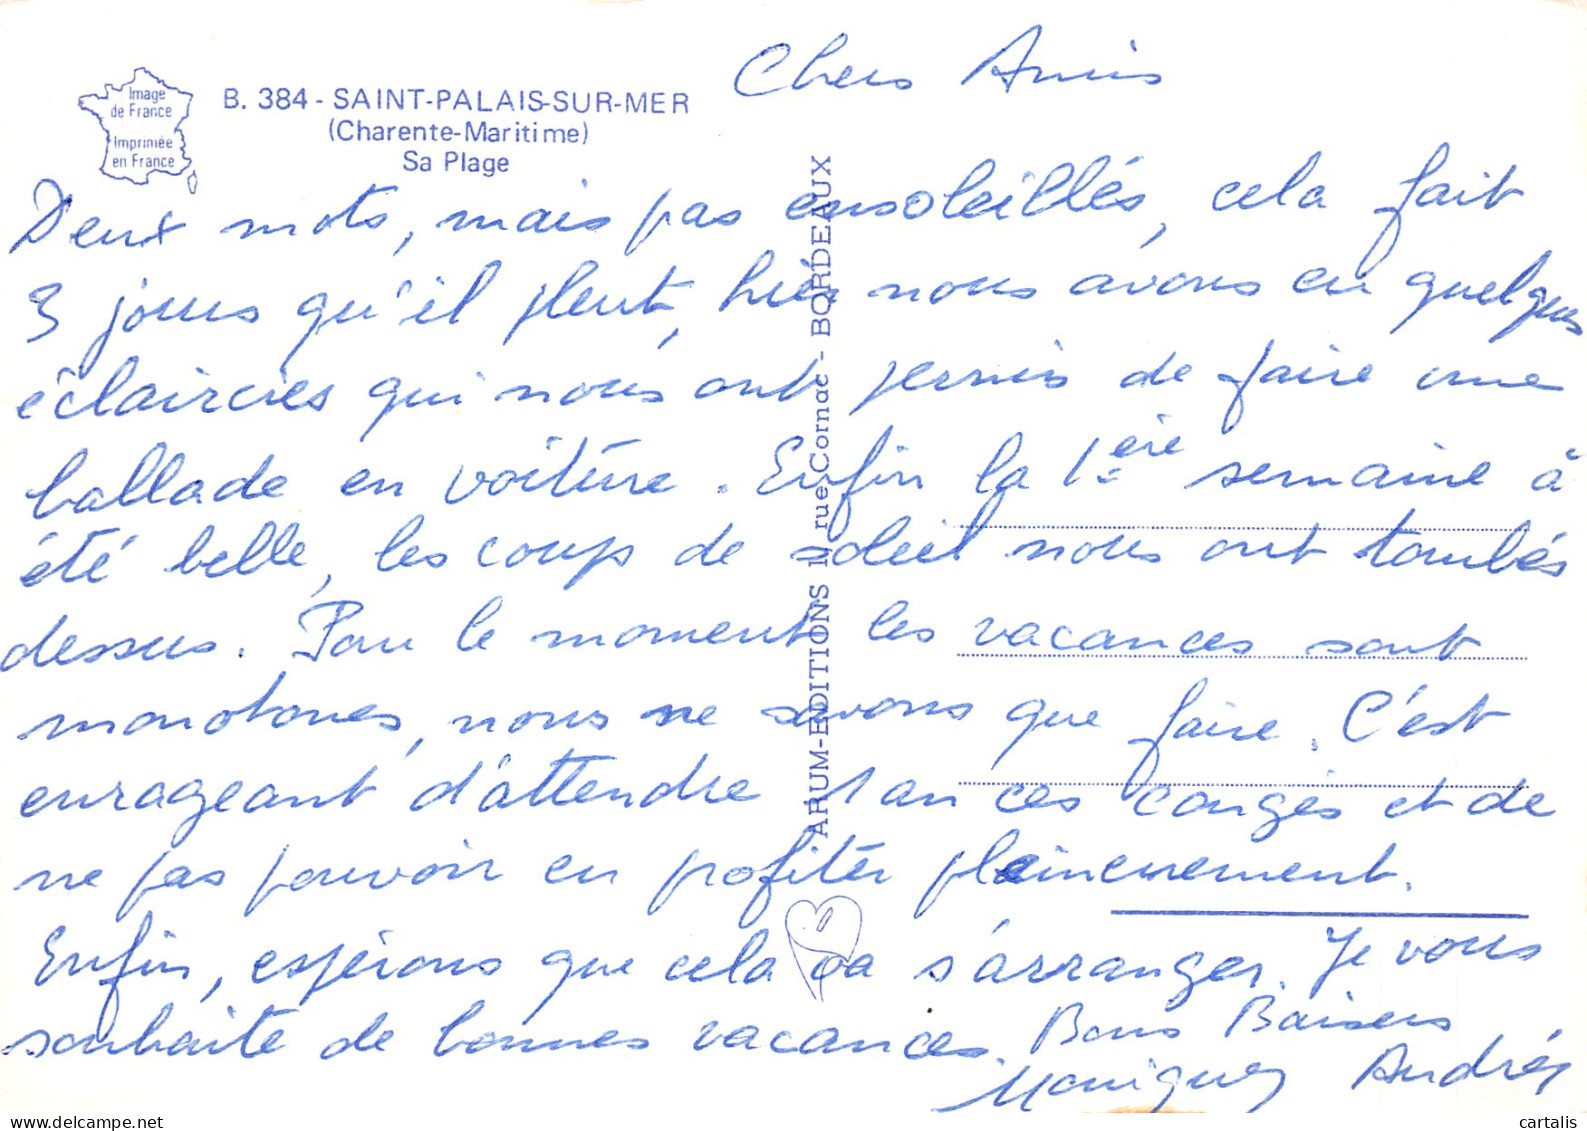 Image
de France
Imprimée
en France
B. 384 - SAINT-PALAIS-SUR-MER
(Charente-Maritime)
Sa Plage
Chers Amis
Deux mots, mais pas ensoleillés, cela fait
3 jours qu'il pleut, hier nous avons eu quelques
éclaircies qui nous ont permis de faire une
ballade en voiture. Enfin la 1ère semaine à
été belle, les coups de soleil nous ont tombés
dessus. Pour le moment les vacances sont
monotones, nous ne savons que faire. C'est
enrageant d'attendre 1 an ces congés et de
ne pas pouvoir en profiter pleinement.
Enfin, espérons que cela va s'arranger. Je vous
souhaite de bonnes vacances. Bons Baisers
Monique André
ARUM-EDITIONS rue Cornac - BORDEAUX
www.delcampe.net
cartalis